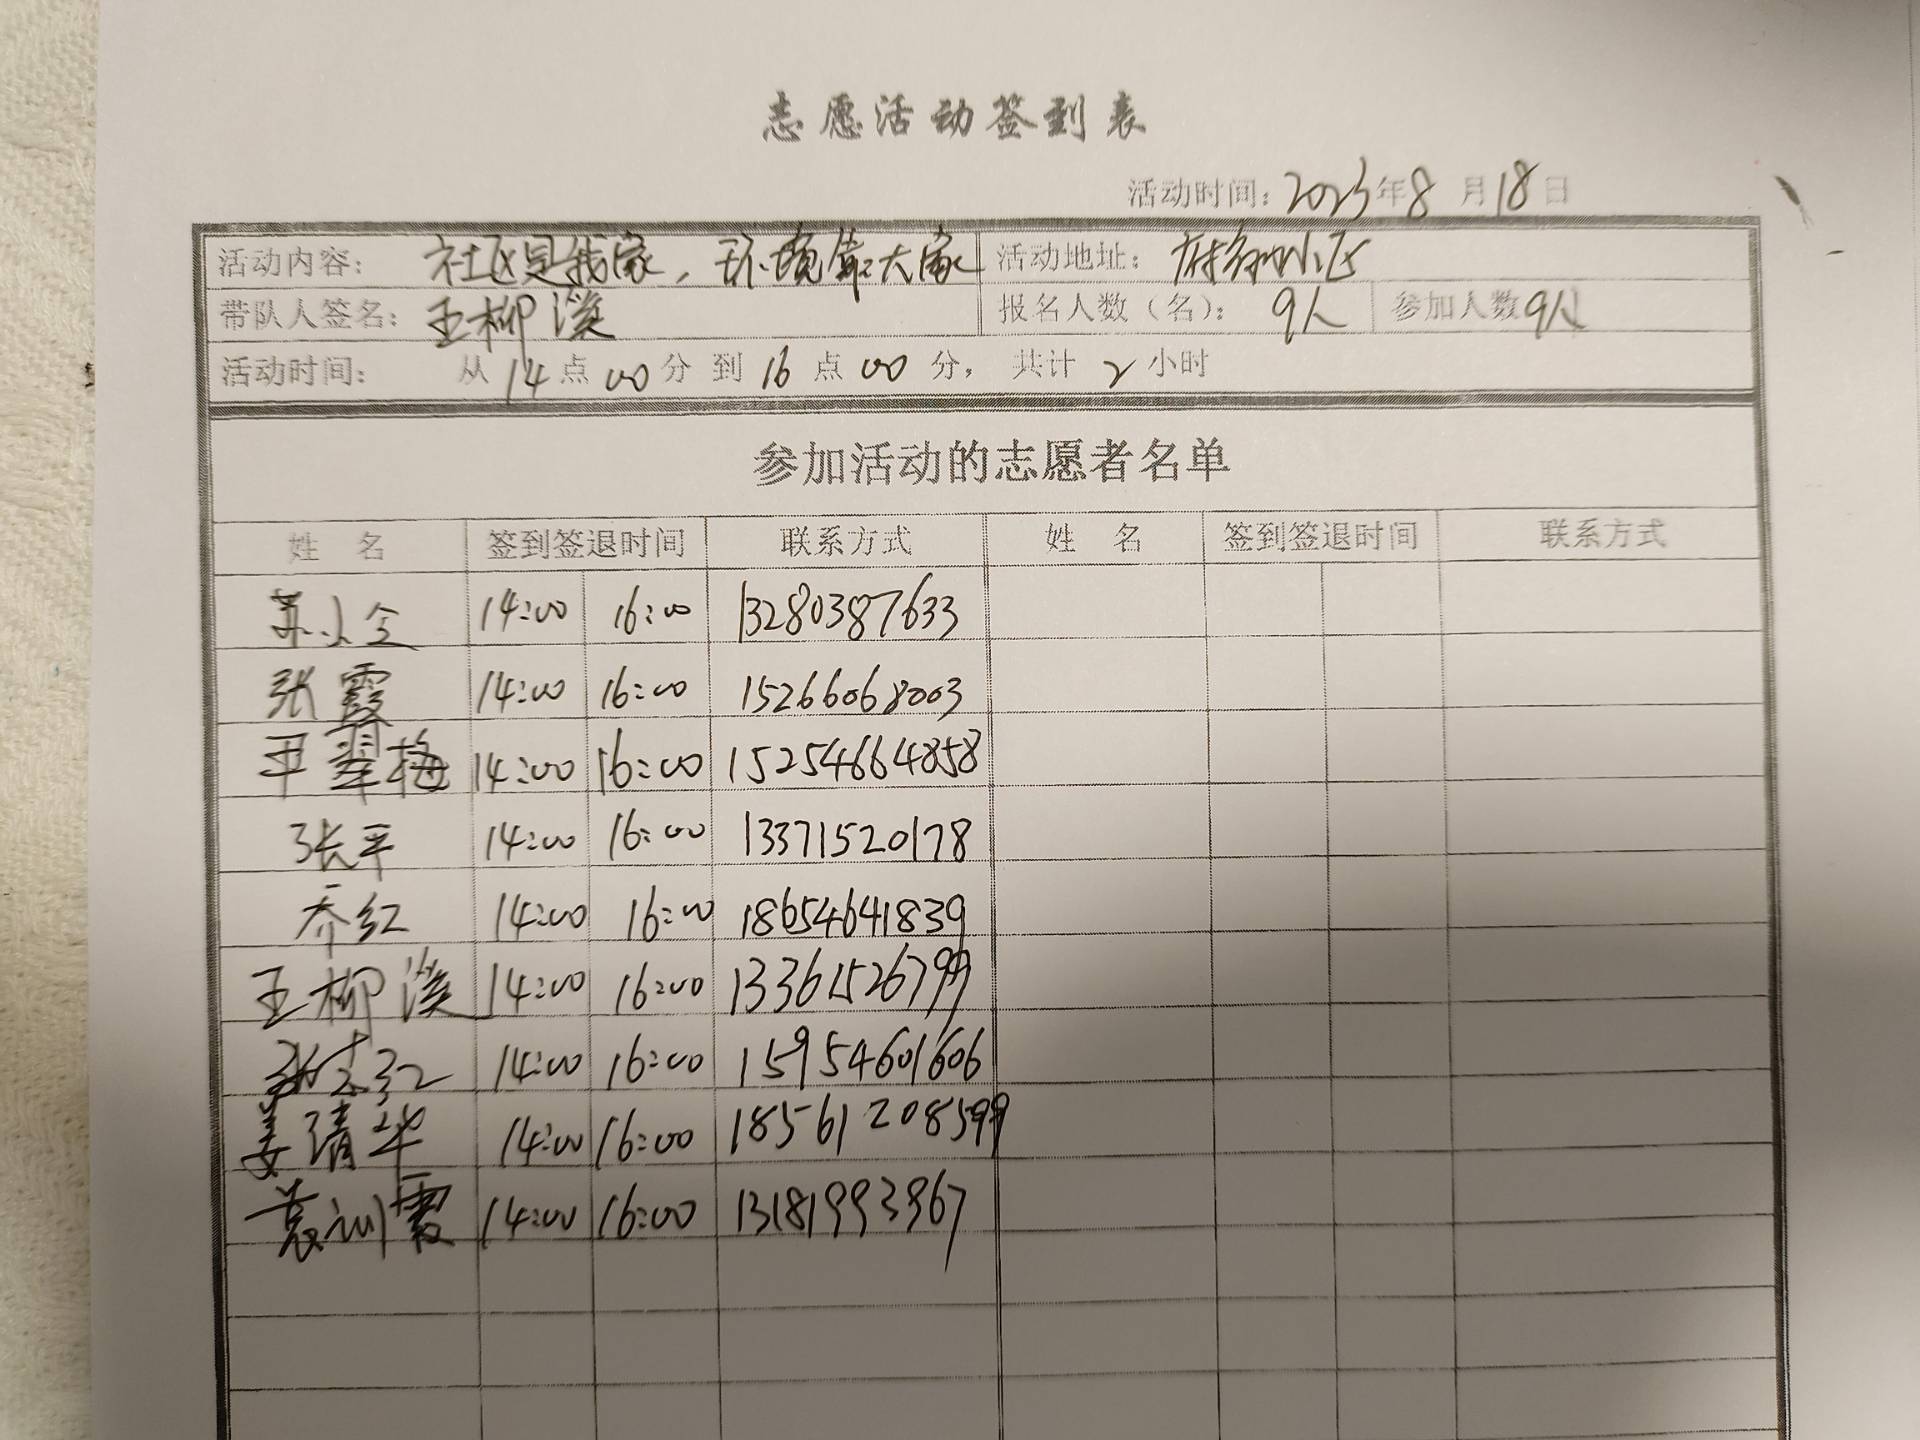 志愿活动签到表
活动时间：2023年8月18日
活动内容： 社区是我家，环境靠大家 活动地址： 小区
带队人签名： 王柳溪 报名人数（名）： 9人 参加人数 9人
活动时间： 从 14 点 00 分 到 16 点 00 分， 共计 2 小时
参加活动的志愿者名单
姓 名 签到签退时间 联系方式 姓 名 签到签退时间 联系方式
苏小全 14:00 16:00 13280387633
张霞 14:00 16:00 15266068003
王翠梅 14:00 16:00 15254664858
张平 14:00 16:00 13371520178
乔红 14:00 16:00 18654641839
王柳溪 14:00 16:00 13361526799
14:00 16:00 15954601606
姜清华 14:00 16:00 18561208599
袁训霞 14:00 16:00 13181993967